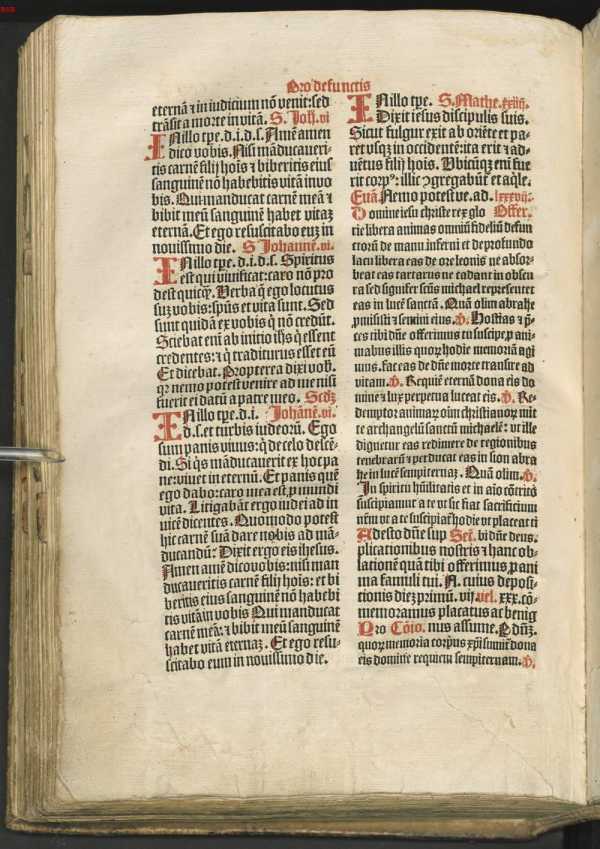 Pro defunctis
eternã ⁊ in iudicium nõ venit: sed
trãsit a morte in vitã. S. Joh̃. vi
IN illo tp̃e. d. i. d. s. Amẽ amen
dico vobis. Nisi mãducaueri⸗
tis carnẽ filij hoĩs ⁊ biberitis eius
sanguinẽ nõ habebitis vitã in vo
bis. Qui manducat carnẽ meã: ⁊
bibit meũ sanguinẽ habet vitaʒ
eternã. Et ego resuscitabo euʒ in
nouissimo die. S Johannẽ. vi.
IN illo tp̃e. d. i. d. s. Spiritus
est qui viuificat: caro nõ pro
dest quicq̃. Verba q̃ ego locutus
suʒ vobis: spũs et vita sunt. Sed
sunt quidã ex vobis q̃ nõ credũt.
Sciebat eni ab initio ihs q̃ essent
credentes: ⁊ q̃ traditurus esset eũ
Et dicebat. Propterea dixi vob̃.
qꝛ nemo potest venire ad me nisi
fuerit ei datũ a patre meo. Scdʒ
IN illo tp̃e. d. i. Johãnẽ. vi.
d. s. et turbis iudeorũ. Ego
sum panis viuus: q̃ de celo descẽ⸗
di. Si q̃s mãducauerit ex hoc pa⸗
ne: viuet in eternũ. Et panis quẽ
ego dabo: caro mea est, ꝓ mundi
vita. Litigabãt ergo iudei ad in
uicẽ dicentes. Quomodo potest
hic carnẽ suã dare nobis ad mã⸗
ducandũ: Dixit ergo eis ihesus.
Amen amẽ dico vobis: nisi man
ducaueritis carnẽ filij hoĩs: et bi
beritis eius sanguinẽ nõ habebi
tis vitã in vobis Qui manducat
carnẽ meã: ⁊ bibit meũ sanguinẽ
habet vitã eternaʒ. Et ego resu⸗
scitabo eum in nouissimo die.
IN illo tp̃e. S. Mathe. xxiiij.
Dixit iesus discipulis suis.
Sicut fulgur exit ab oriẽte et pa⸗
ret vsqʒ in occidentẽ: ita erit ⁊ ad⸗
uẽtus filij hoĩs. Ubicũqʒ eni fue
rit corpꝰ: illic ꝯgregabũt et aq̃le.
Euã. Nemo potest ve. ad. lxxxvij:
Domine iesu christe rex glo Offer.
rie libera animas omniũ fideliũ defun
ctorũ de manu inferni et de profundo
lacu libera eas de ore leonis ne absor⸗
beat eas tartarus ne cadant in obscu
ra sed signifer scũs michael representet
eas in lucẽ sanctã. Quã olim abrahe
ꝓmisisti ⁊ semini eius. V̓. Hostias ⁊ p̃⸗
ces tibi dñe offerimus tu suscipe ꝓ ani⸗
mabus illis quoꝝ hodie memoriã agi
mus. fac eas de dñe morte transire ad
vitam. V̓. Requiẽ eternã dona eis do
mine ⁊ lux perpetua luceat eis. V̓. Re⸗
demptor animaꝝ oĩm christianoꝝ mit
te archangelũ sanctũ michaelẽ: vt ille
dignetur eas redimere de regionibus
tenebrarũ ⁊ perducat eas in sion abra
he in lucẽ sempiternaʒ. Quã olim. V̓.
In spiritu hũilitatis et in aĩo cõtrito
suscipiamur a te vt sic fiat sacrificium
nr̃m vt a te suscipiaꝉ hodie vt placeat ti
Adesto dñe sup Scẽt. bi dñe deus.
plicationibus nostris ⁊ hanc ob⸗
lationẽ quã tibi offerimus ꝓ ani
ma famuli tui. N. cuius deposi⸗
tionis dieʒ primũ. vij. vel. xxx. cõ⸗
memoramus placatus ac benig
Pro Cõio. nus assume. P dñʒ.
quoꝝ memoria corꝑus xp̃i sumit̃ dona
eis domine requiem sempiternam. V̓.